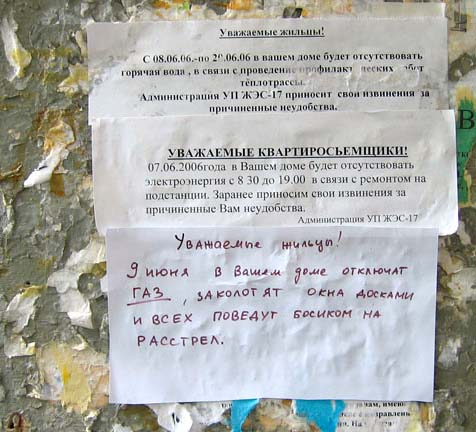 Уважаемые жильцы!
С 08.06.06.-по 28.06.06 в вашем доме будет отсутствовать
горячая вода , в связи с проведение профилакт ческих абот
теплотрассы.
Администрация УП ЖЭС-17 приносит свои извинения за
причиненные неудобства.
УВАЖАЕМЫЕ КВАРТИРОСЪЕМЩИКИ!
07.06.2006года в Вашем доме будет отсутствовать
электроэнергия с 8 30 до 19.00 в связи с ремонтом на
подстанции. Заранее приносим свои извинения за
причиненные Вам неудобства.
Администрация УП ЖЭС-17
Уважаемые жильцы!
9 июня в Вашем доме отключат
ГАЗ, заколотят окна досками
и всех поведут босиком на
расстрел.